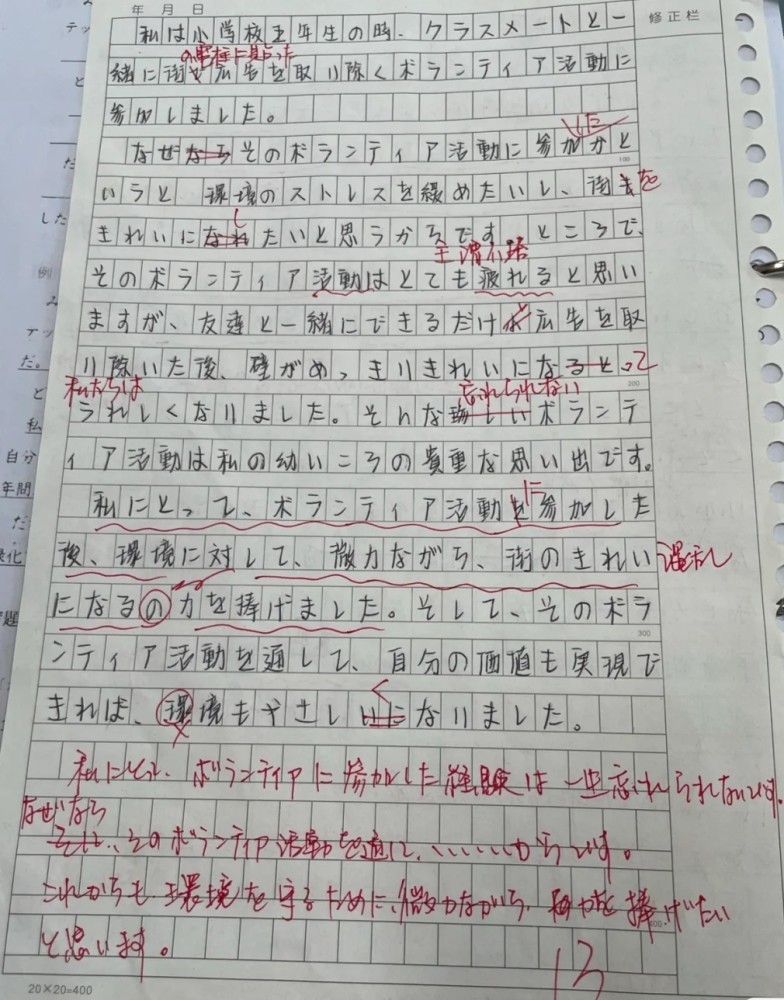 年 月 日
修正栏
私は小学校五年生の時、クラスメートと一
の電柱に貼った
緒に街や広告を取り除くボランティア活動に
参加しました。
した
なぜならそのボランティア活動に参加かと
100
いうと、環境のストレスを緩めたいし、街を
し
きれいになれたいと思うからです。ところで、
主 谓 不 搭
そのボランティア活動はとても疲れると思い
ますが、友達と一緒にできるだけ広告を取
と
り除いた後、壁がめっきりきれいになると。って
200
私たちは
忘れられない
うれしくなりました。そんなボランテ
ィア活動は私の幼いころの貴重な思い出です。
に
私にとって、ボランティア活動を参加した
後、環境に対して、微力ながら、街のきれい
になるの力を捧げました。そして、そのボラ
300
ンティア活動を通して、自分の価値も実現で
く
きれば、環境もやさしいになりました。
私にとって、ボランティアに参加した経験は一生忘れられないです。
なぜなら
それは、そのボランティア活動を通して、、、、、、からです。
これからも環境を守るために、微力ながら、力を捧げたい
400
と思います。
13
20×20=400
テッ
と
だ
した
例
テッ
だ。
と
私
自分
年間
だ
题